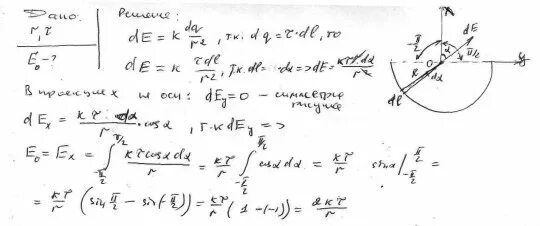 Дано:
r, τ
E₀ - ?
Решение:
dE = k dq/r², т.к. dq = τ·dl, то
dE = k τdl/r², т.к. dl = ·dα => dE = kτr·dα/r²
В проекциях на оси: dEy = 0 – симметрия рисунка
dEx = kτ· dα/r · cosα, т.к dEy = >
E₀ = Ex = ∫_{-π/2}^{π/2} kτcosαdα/r = kτ/r ∫_{-π/2}^{π/2} cosαdα = kτ/r sinα|_{-π/2}^{π/2} =
= kτ/r (sin π/2 - sin(-π/2)) = kτ/r (1-(-1)) = 2kτ/r
x
dE
π/2
α
π/2
y
R
O
dα
dl